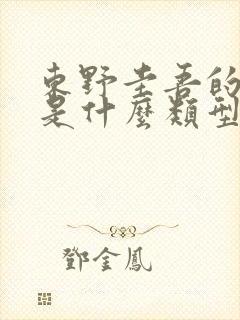 東野圭吾的
是什麼類型
鄧金鳳